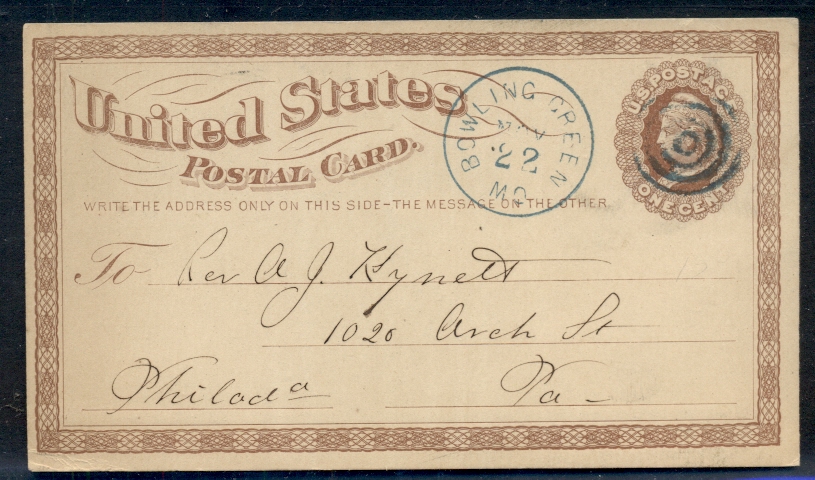 United States
POSTAL CARD.
WRITE THE ADDRESS ONLY ON THIS SIDE-THE MESSAGE ON THE OTHER
BOWLING GREEN
MAY
22
MO.
U.S. POSTAGE
ONE CENT
To Rev A J. Kynett
1020 Arch St
Philada
Pa-